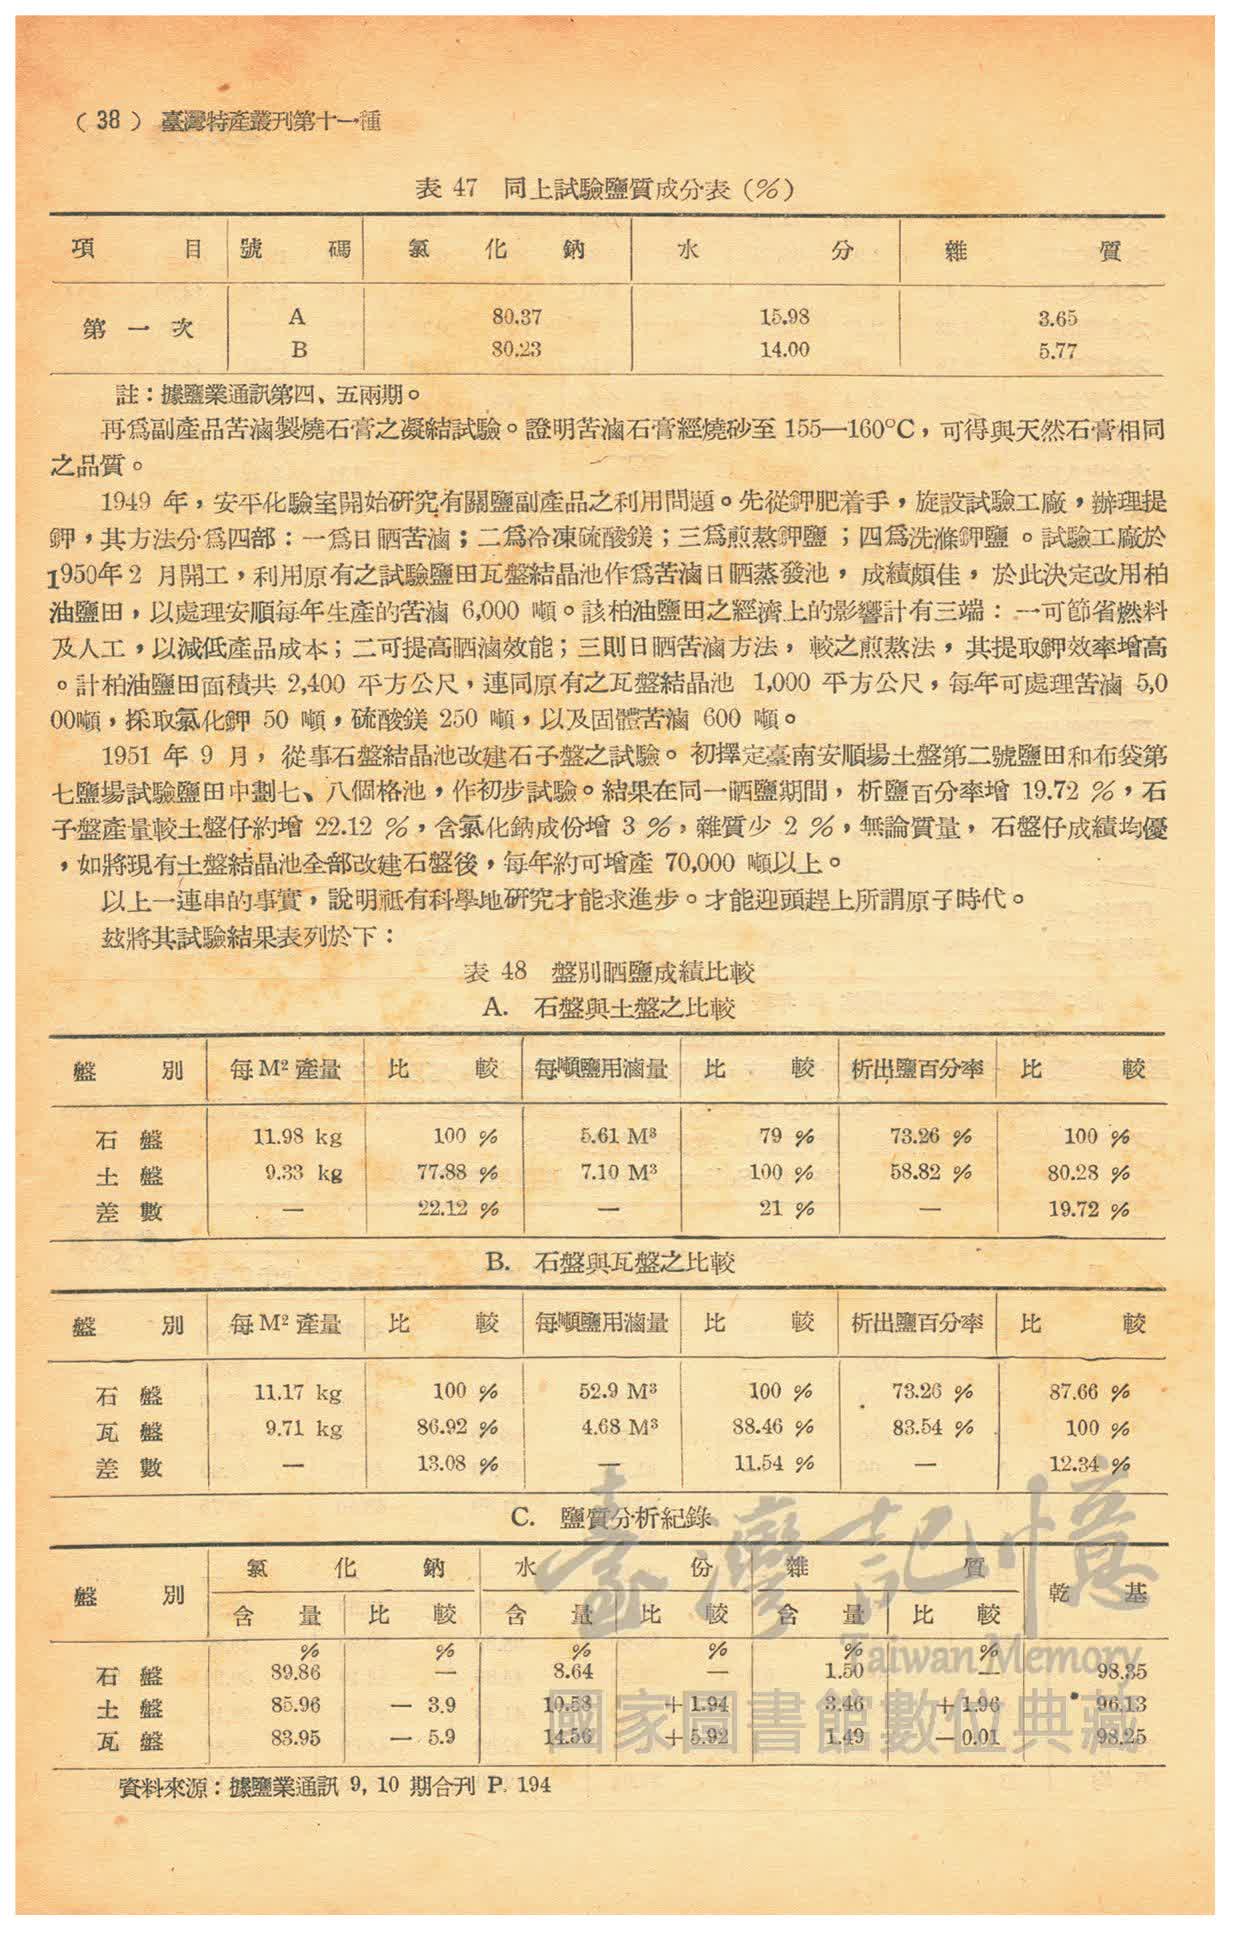 （38） 臺灣特產叢刊第十一種
表 47 同上試驗鹽質成分表 (%)
項 目 號 碼 氯 化 鈉 水 分 雜 質
第 一 次 A 80.37 15.98 3.65
B 80.23 14.00 5.77
註：據鹽業通訊第四、五兩期。
再爲副產品苦滷製燒石膏之凝結試驗。證明苦滷石膏經燒砂至 155—160°C，可得與天然石膏相同
之品質。
1949 年，安平化驗室開始研究有關鹽副產品之利用問題。先從鉀肥着手，旋設試驗工廠，辦理提
鉀，其方法分爲四部：一爲日晒苦滷；二爲冷凍硫酸鎂；三爲煎熬鉀鹽；四爲洗滌鉀鹽。試驗工廠於
1950年2 月開工，利用原有之試驗鹽田瓦盤結晶池作爲苦滷日晒蒸發池，成績頗佳，於此決定改用柏
油鹽田，以處理安順每年生產的苦滷 6,000 噸。該柏油鹽田之經濟上的影響計有三端：一可節省燃料
及人工，以減低產品成本；二可提高晒滷效能；三則日晒苦滷方法，較之煎熬法，其提取鉀效率增高
。計柏油鹽田面積共 2,400 平方公尺，連同原有之瓦盤結晶池 1,000 平方公尺，每年可處理苦滷 5,0
00噸，採取氯化鉀 50 噸，硫酸鎂 250 噸，以及固體苦滷 600 噸。
1951 年 9 月，從事石盤結晶池改建石子盤之試驗。初擇定臺南安順場土盤第二號鹽田和布袋第
七鹽場試驗鹽田中劃七、八個格池，作初步試驗。結果在同一晒鹽期間，析鹽百分率增 19.72 %，石
子盤產量較土盤仔約增 22.12 %，含氯化鈉成份增 3 %，雜質少 2 %，無論質量，石盤仔成績均優
，如將現有土盤結晶池全部改建石盤後，每年約可增產 70,000 噸以上。
以上一連串的事實，說明祇有科學地研究才能求進步。才能迎頭趕上所謂原子時代。
玆將其試驗結果表列於下：
表 48 盤別晒鹽成績比較
A. 石盤與土盤之比較
盤 別 每M²產量 比 較 每噸鹽用滷量 比 較 析出鹽百分率 比 較
石 盤 11.98 kg 100 % 5.61 M³ 79 % 73.26 % 100 %
土 盤 9.33 kg 77.88 % 7.10 M³ 100 % 58.82 % 80.28 %
差 數 — 22.12 % — 21 % — 19.72 %
B. 石盤與瓦盤之比較
盤 別 每M²產量 比 較 每噸鹽用滷量 比 較 析出鹽百分率 比 較
石 盤 11.17 kg 100 % 52.9 M³ 100 % 73.26 % 87.66 %
瓦 盤 9.71 kg 86.92 % 4.68 M³ 88.46 % 83.54 % 100 %
差 數 — 13.08 % — 11.54 % — 12.34 %
C. 鹽質分析紀錄
盤 別 氯 化 鈉 水 份 雜 質 乾 基
含 量 比 較 含 量 比 較 含 量 比 較
% % % % % %
石 盤 89.86 — 8.64 — 1.50 — 98.35
土 盤 85.96 — 3.9 10.58 ＋1.94 3.46 ＋1.96 96.13
瓦 盤 83.95 — 5.9 14.56 ＋5.92 1.49 —0.01 98.25
資料來源：據鹽業通訊 9, 10 期合刊 P. 194
臺灣記憶
Taiwan Memory
國家圖書館數位典藏